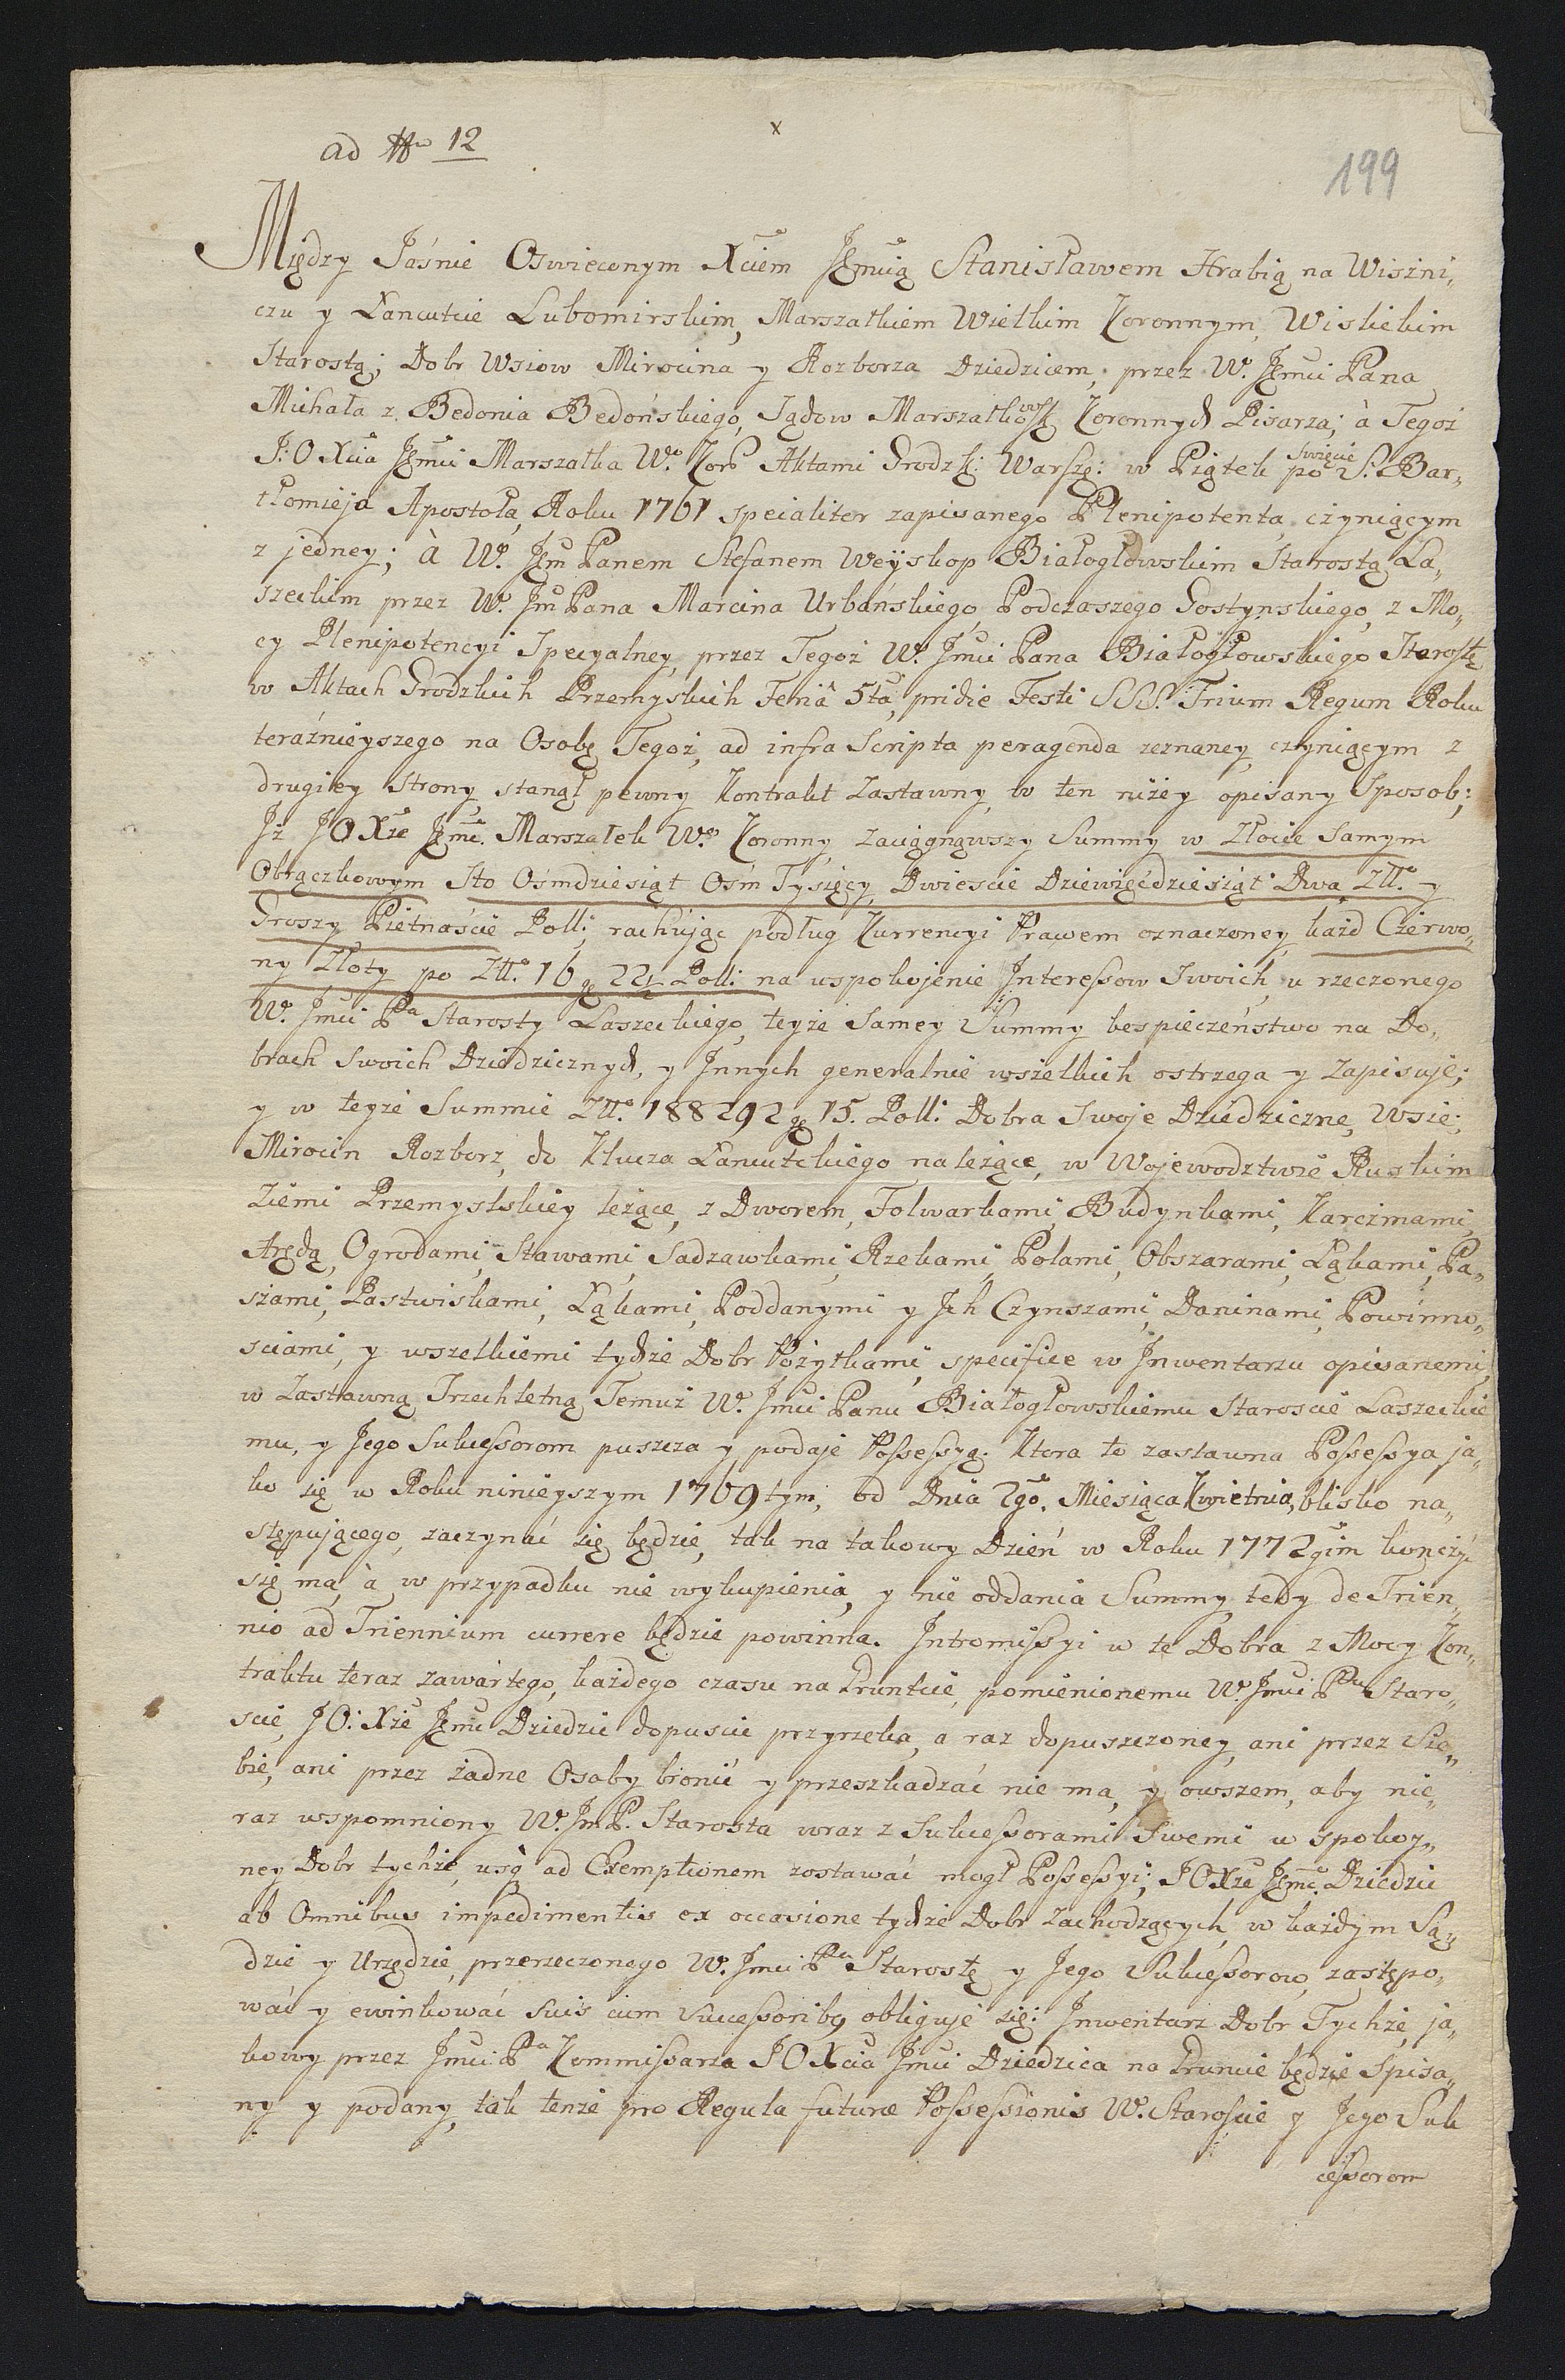 ad Nr 12
x
199
Między Jaśnie Oswieconym Xciem Jgmcią Stanisławem Hrabią na Wiśni„
czu y Łancutcie Lubomirskim, Marszałkiem Wielkim Koronnym, Wiskitkim
Starostą; Dobr Wsiow Mirocina y Rozborza Dziedzicem, przez W. Jgmci Pana
Michała z Bedonia Bedońskiego, Sądow Marszałkowsk Koronnych Pisarza; à Tegoż
J:O Xcia Jgmci Marszałka Wo Koro Aktami Grodzk: Warszę: w Piątek po Swięcie S. Bar„
tłomieja Apostoła, Roku 1761 specialiter zapisanego Plenipotenta, czyniącym
z jedney; à W. Jgm Panem Stefanem Weyskop Białogłowskim Starostą La„
szeckim przez W. Jm Pana Marcina Urbańskiego, Podczaszego Gostynskiego, z Mo„
cy Plenipotencyi Specyalney, przez Tegoż W. Jmci Pana Białogłowskiego Starostę
w Aktach Grodzkich Przemyskich Feriâ 5ta, pridie Festi SSS. Trium Regum Roku
teraźnieyszego na Osobę Tegoż, ad infra Scripta peragenda zeznaney, czyniącym z
drugiey strony, stanął pewny Kontrakt Zastawny, w ten niżey opisany Sposob;
Jż JO Xże Jgmć. Marszałek Wo Koronny, zaciągnąwszy Summy w Złocie samym
Obrączkowym Sto Ośmdziesiąt Ośm Tysięcy, Dwiescie Dziewięćdziesiąt Dwa, Złł. y
Groszy Piętnaście Poll: rachując podług Kurrencyi Prawem oznaczoney, każd Czerwo„
ny Złoty po Złł. 16 gr 22½ Poll: na uspokojenie Interessow Swoich, u rzeczonego
W. Jmci Pa Starosty Laszeckiego, teyże samey Summy bespieczeństwo na Do„
brach swoich Dziedzicznych, y Jnnych generalnie wszelkich ostrzega y Zapisuje;
y w teyże Summie Złł. 188292 gr 15. Poll: Dobra Swoje Dziedziczne, Wsie;
Mirocin Rozborz, do Klucza Łancutckiego należące, w Wojewodztwie Ruskim
Ziemi Przemyslskiey leżące, z Dworem, Folwarkami, Budynkami, Karczmami,
Arędą, Ogrodami, Stawami, Sadzawkami, Rzekami, Polami, Obszarami, Łąkami, Pa„
szami, Pastwiskami, Łąkami, Poddanymi y Jch Czynszami, Daninami, Powinno„
sciami, y wszelkiemi tychże Dobr Pożytkami, specifice w Jnwentarzu opisanemi,
w Zastawną Trzechletną Temuż W. Jmci Panu Białogłowskiemu Staroscie Laszeckie
mu, y Jego Sukcessorom puszcza y podaje Possessyą. Ktora to zastawna Possessya ja„
ko się w Roku ninieyszym 1769tym, od Dnia 2go. Miesiąca Kwietnia, blisko na„
stępującego, zaczynać się będzie, tak na takowy Dzień w Roku 1772gim kończyć
się ma, à w przypadku nie wykupienia, y nie oddania Summy, tedy de Trien„
nio ad Triennium currere będzie powinna. Intromissyi w te Dobra z Mocy Kon„
traktu teraz zawartego, każdego czasu na Gruntcie, pomienionemu W. Jmci Pnu Staro„
scie, JO: Xże Jgmc Dziedzic dopuscić przyrzeka, a raz dopuszczoney, ani przez Sie„
bie, ani przez żadne Osoby bronić y przeszkadzać nie ma, y owszem, aby nie„
raz wspomniony W. Jm P. Starosta wraz z Sukcessorami Swemi w spokoy„
ney Dobr tychże, usq ad Exemptionem zostawać mogł Possessyi; JO Xże Jgmć. Dziedzic
ab Omnibus impedimentis ex occasione tychże Dobr Zachodzących, w każdym Są„
dzie y Urzędzie, przerzeczonego W. Jmci Pa Starostę y Jego Sukcessorow, zastępo„
wać y ewinkować suis cum successoribq obliguje się. Jnwentarz Dobr Tychże, ja„
kowy przez Jmci Pa Kommissarza JO Xcia Jmci Dziedzica na Gruncie będzie Spisa„
ny y podany, tak tenże pro Regula futuræ Possessionis W. Staroscie y Jego Suk
cessorom